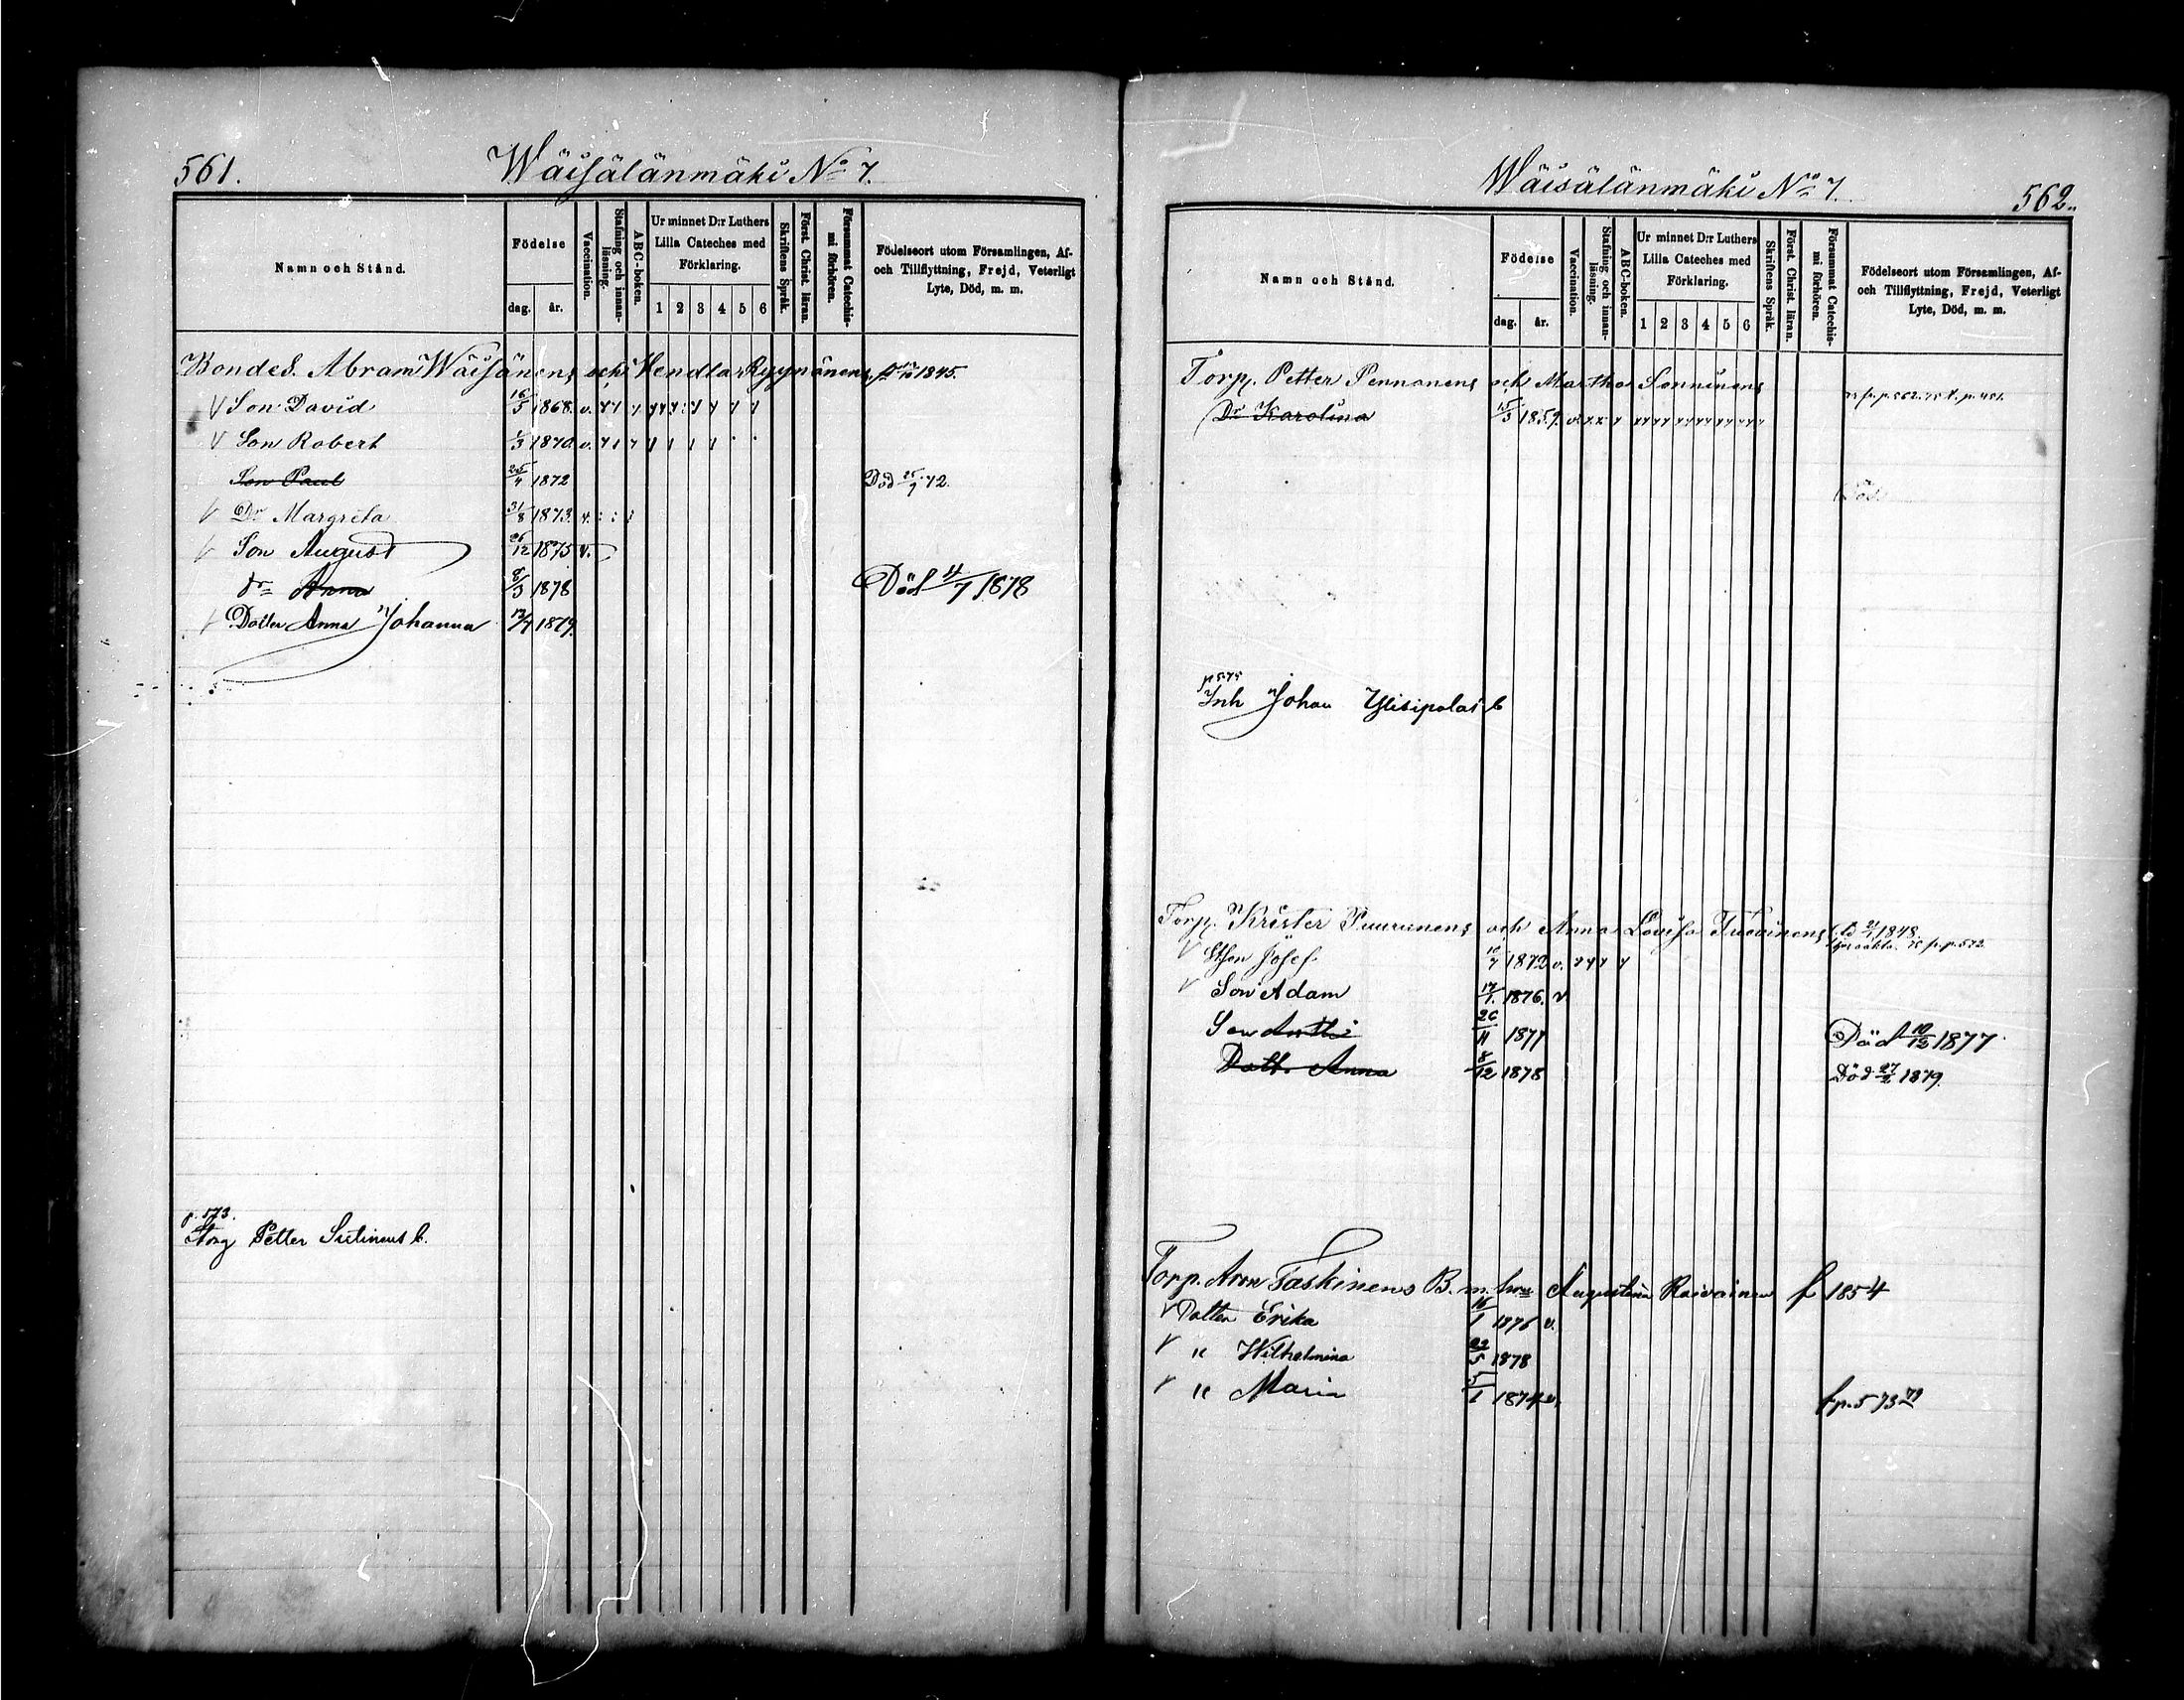 561.
Wäisälänmäki No 7.
Namn och Stånd.
Födelse
dag. år.
Vaccination.
Stafning och innanläsning.
ABC-boken.
Ur minnet D:r Luthers Lilla Cateches med Förklaring.
1 2 3 4 5 6
Skriftens Språk.
Först. Christ. läran.
Försummat Catechismi förhören.
Födelseort utom Församlingen, Af- och Tillflyttning, Frejd, Veterligt Lyte, Död, m. m.
Bondes. Abram Wäisänens och Hendla Ryynänens 1845.
V Son David 16/5 1868. v.
V Son Robert 1/3 1870. v.
Son Paul 25/4 1872 Död 72.
V Dr Margreta 31/8 1873. v.
V Son August 26/12 1875 v.
dr Anna 8/3 1878 Död 4/7 1878
V Dotter Anna Johanna 1879.
p. 573.
Petter
562.
Wäisälänmäki No 7.
Namn och Stånd.
Födelse
dag. år.
Vaccination.
Stafning och innanläsning.
ABC-boken.
Ur minnet D:r Luthers Lilla Cateches med Förklaring.
1 2 3 4 5 6
Skriftens Språk.
Först. Christ. läran.
Försummat Catechismi förhören.
Födelseort utom Församlingen, Af- och Tillflyttning, Frejd, Veterligt Lyte, Död, m. m.
Torp. Petter Pennanens och Martha Sonninens
Dr Karolina 15/3 1859. v.
p 575
Inh Johan
Torp. Krister Puurunens och Anna Lovisa Tuovinens 1848.
V Josef 10/7 1872 v.
V Son Adam 17/1 1876. v
Son Antti 26/11 1877 Död 10/12 1877
Dott. Anna 8/12 1878 Död 27/2 1879.
Torp. Aron Taskinens B. m. hru Augustina Raivainen f 1854
V Dotter Erika 16/1 1876 v.
V " Wilhelmina 1878
V " Maria 5/1 1874 v. fr p. 573 79